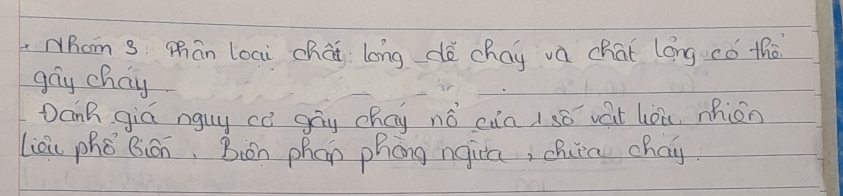 - Nhóm 3. Phân loại chất lỏng dễ cháy và chất lỏng có thể
gây cháy
- Đánh giá nguy cơ gây cháy nổ của 1 số vật liệu, nhiên
liệu phổ biến. Biện pháp phòng ngừa, chữa cháy.